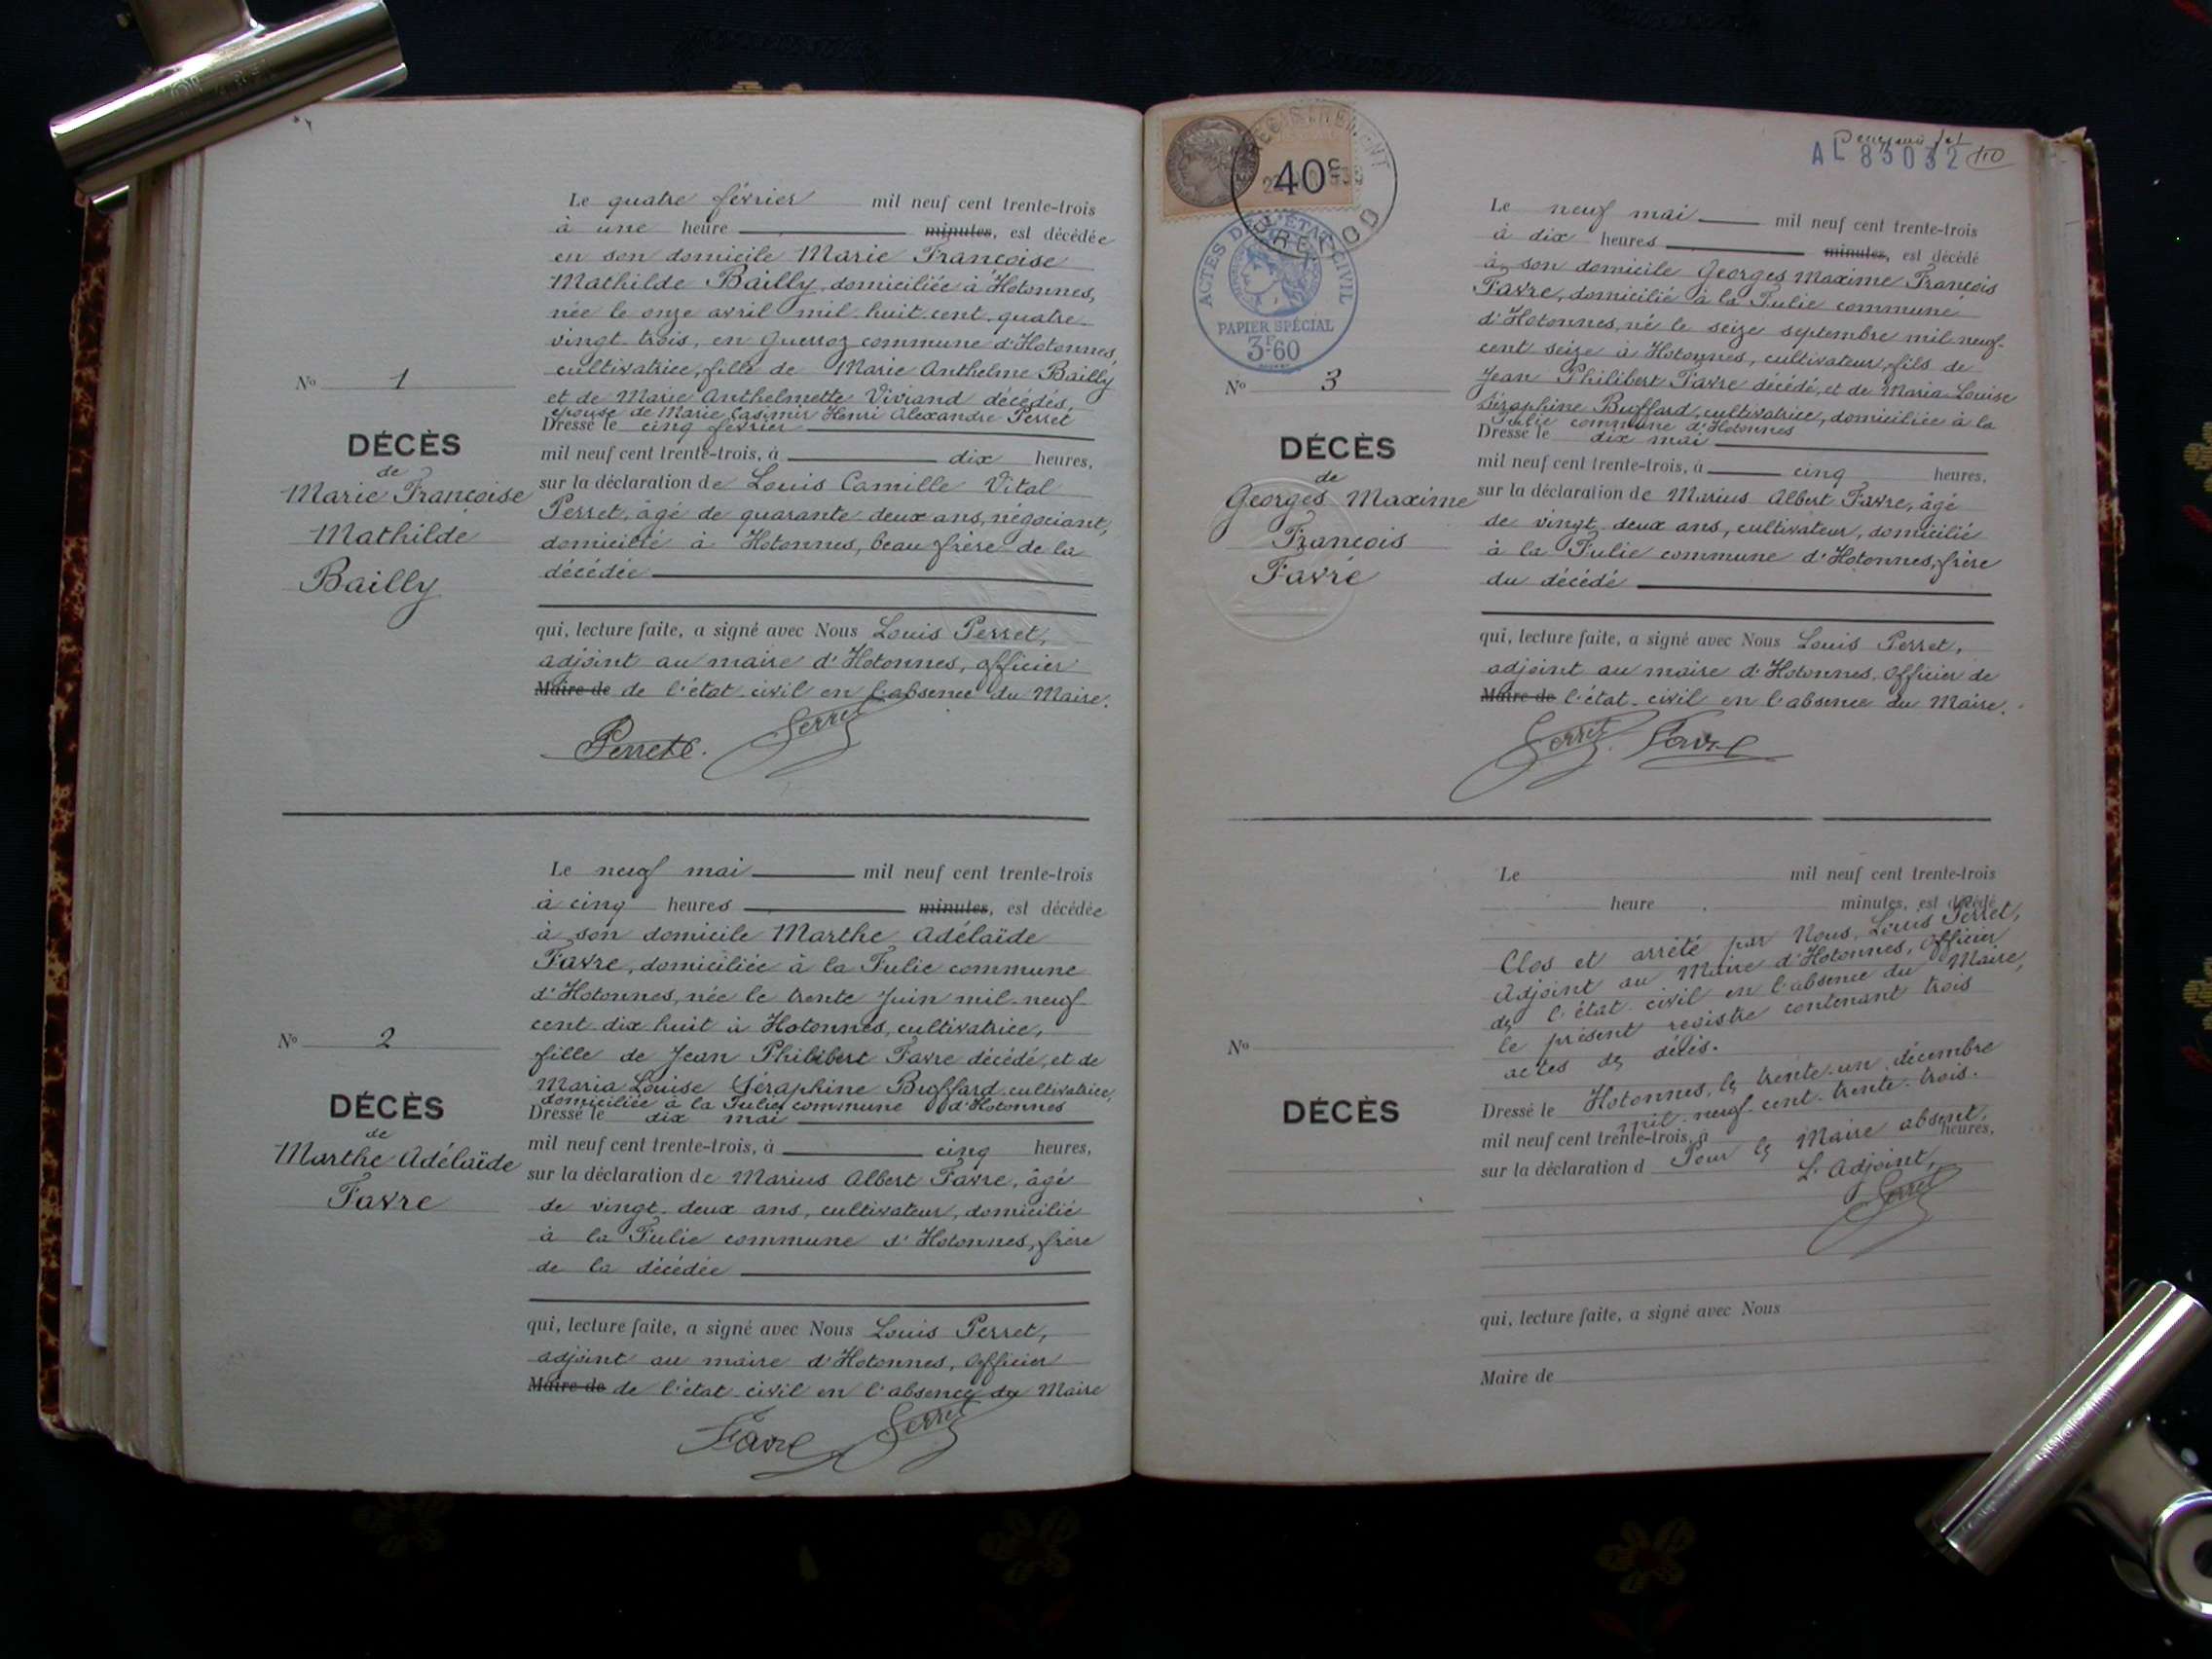 Le quatre février mil neuf cent trente-trois
à une heure minutes, est décédée
en son domicile Marie Françoise
Mathilde Bailly, domiciliée à Hotonnes,
née le onze avril mil-huit-cent-quatre-
vingt-trois, en Guerroz commune d'Hotonnes,
cultivatrice, fille de Marie Anthelme Bailly
et de Marie Anthelmette Viviand décédés,
épouse de Marie Casimir Henri Alexandre Perret
Dressé le cinq février
mil neuf cent trente-trois, à dix heures,
sur la déclaration de Louis Camille Vital
Perret, âgé de quarante deux ans, négociant,
domicilié à Hotonnes, beau frère de la
décédée
qui, lecture faite, a signé avec Nous Louis Perret,
adjoint au maire d'Hotonnes, officier
Maire de de l'état-civil en l'absence du Maire.
Perret Perret
No 1
DÉCÈS
de
Marie Françoise
Mathilde
Bailly
Le neuf mai mil neuf cent trente-trois
à cinq heures minutes, est décédée
à son domicile Marthe Adélaïde
Favre, domiciliée à la Julie commune
d'Hotonnes, née le trente Juin mil-neuf-
cent dix huit à Hotonnes, cultivatrice,
fille de Jean Philibert Favre décédé, et de
Maria Louise Séraphine Buffard cultivatrice,
domiciliée à la Julie commune d'Hotonnes
Dressé le dix mai
mil neuf cent trente-trois, à cinq heures,
sur la déclaration de Marius Albert Favre, âgé
de vingt-deux ans, cultivateur, domicilié
à la Julie commune d'Hotonnes, frère
de la décédée
qui, lecture faite, a signé avec Nous Louis Perret,
adjoint au maire d'Hotonnes, Officier
Maire de de l'état-civil en l'absence du Maire
Favre Perret
No 2
DÉCÈS
de
Marthe Adélaïde
Favre
40c
ENREGISTREMENT
ACTES DE L'ÉTAT CIVIL
PAPIER SPÉCIAL
3F60
AL 83032
110
Le neuf mai mil neuf cent trente-trois
à dix heures minutes, est décédé
à son domicile Georges Maxime François
Favre, domicilié à la Julie commune
d'Hotonnes, né le seize septembre mil-neuf-
cent seize à Hotonnes, cultivateur, fils de
Jean Philibert Favre décédé, et de Maria Louise
Séraphine Buffard, cultivatrice, domiciliée à la
Julie commune d'Hotonnes
Dressé le dix mai
mil neuf cent trente-trois, à cinq heures,
sur la déclaration de Marius Albert Favre, âgé
de vingt-deux ans, cultivateur, domicilié
à la Julie commune d'Hotonnes, frère
du décédé
qui, lecture faite, a signé avec Nous Louis Perret,
adjoint au maire d'Hotonnes, Officier de
Maire de l'état-civil en l'absence du Maire.
Perret Favre
No 3
DÉCÈS
de
Georges Maxime
François
Favre
Le mil neuf cent trente-trois
heure minutes, est décédé
Clos et arrêté par Nous, Louis Perret,
Adjoint au Maire d'Hotonnes, Officier
de l'état civil en l'absence du Maire,
le présent registre contenant trois
actes de décès.
Dressé le Hotonnes, le trente-un décembre
mil-neuf-cent-trente-trois.
mil neuf cent trente-trois, à heures,
Pour le Maire absent.
sur la déclaration d
L'Adjoint,
Perret
qui, lecture faite, a signé avec Nous
Maire de
No
DÉCÈS